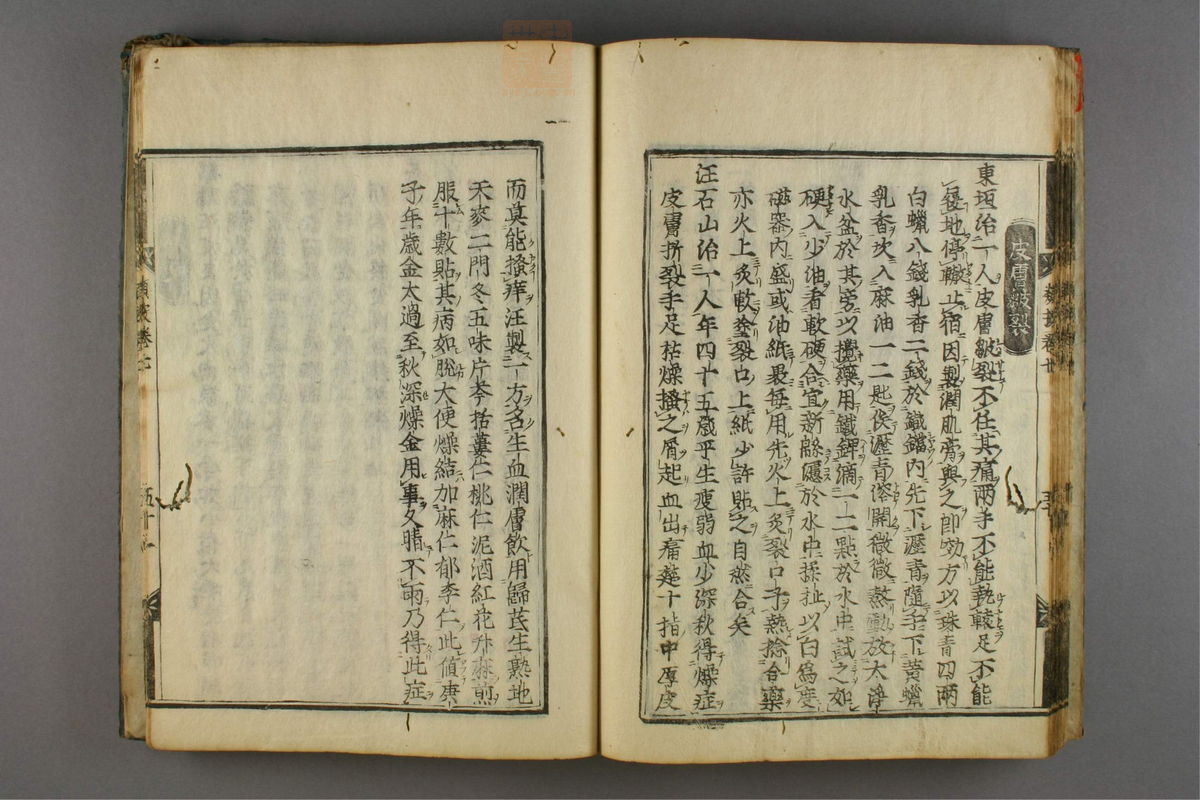 皮膚皴裂
東垣治一人皮膚皴裂不任其痛兩手不能執轅足不能
履地停轍止宿因製潤肌膏與之即効方以珠青四兩
白蠟八錢乳香二錢於鐵鐺內先下瀝青隨手下黃蠟
乳香次入麻油一二匙俟瀝青溶開微微熬動放大淨
水盆於其旁以攪藥用鐵鎞滴一二點於水中試之如
硬入少油看軟硬合宜新綿濾於水中揉扯以白為度
磁器內盛或油紙裹每用先火上炙裂口子熱捻合藥
亦火上炙軟塗裂口上紙少許貼之自然合矣
汪石山治一人年四十五歲平生瘦弱血少深秋得燥症
皮膚折裂手足枯燥搔之屑起血出痛楚十指中厚皮
而莫能搔痒汪製一方名生血潤膚飲用歸芪生熟地
天麥二門冬五味片芩括蔞仁桃仁泥酒紅花升麻煎
服十數貼其病如脫大便燥結加麻仁郁李仁此值庚
子年歲金太過至秋深燥金用事久晴不雨乃得此症